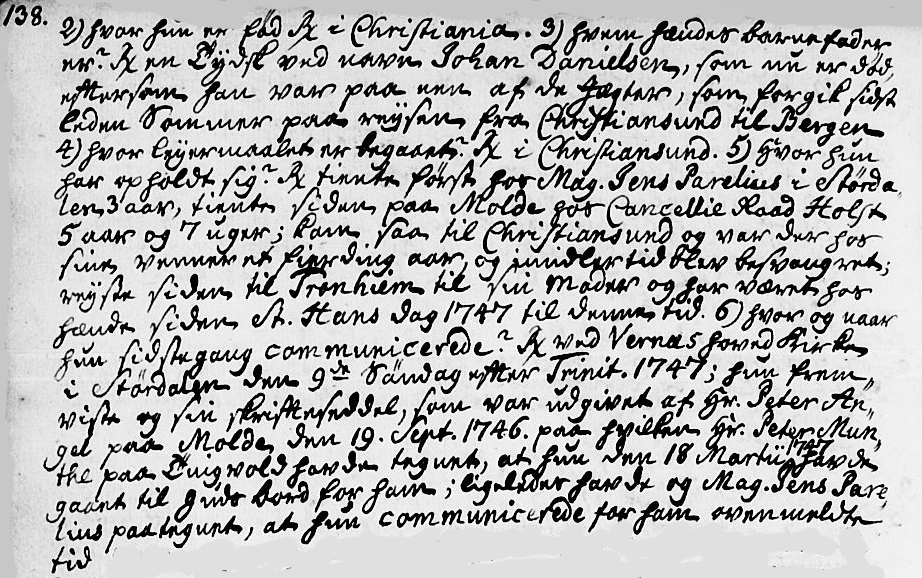 138.
2) hvor hun er fød Rx i Christiania. 3) hvem hændes barnefader
er? Rx en Tydsk ved navn Johan Danielsen, som nu er død,
eftersom han var paa een af de Jægter, som forgik sidst
leden Sommer paa reysen fra Christiansund til Bergen
4) hvor leyermaalet er begaaet? Rx i Christiansund. 5) Hvor hun
har opholdt sig? Rx tiente først hos Mag. Jens Parelius i Størda-
len 3 aar, tiente siden paa Molde hos Cancellie Raad Holst
5 aar og 7 uger; kom saa til Christiansund og var der hos
sine venner et fierding aar, og imidlertid blev besvangret;
reyste siden til Tronhiem til sin Moder og har været hos
hænde siden St. Hans dag 1747 til denne tid. 6) hvor og naar
hun sidste gang communicerede? Rx ved Vernæs hoved Kirke
i Størdalen den 9de Søndag efter Trinit. 1747; hun frem„
viste og sin skrifteseddel, som var udgivet af Hr. Peter An„
gel paa Molde den 19. Sept. 1746. paa hvilken Hr. Peter Mun„
the paa Tingvold havde tegnet, at hun den 18 Martii 1747 havde
gaaet til Guds bord for ham; ligeledes havde og Mag. Jens Pare„
lius paategnet, at hun communicerede for ham ovenmeldte
tid